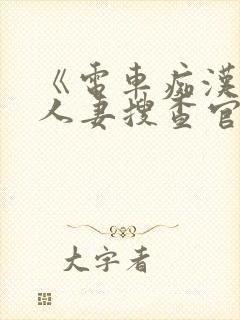 《電車痴漢
人妻搜查官
大字者